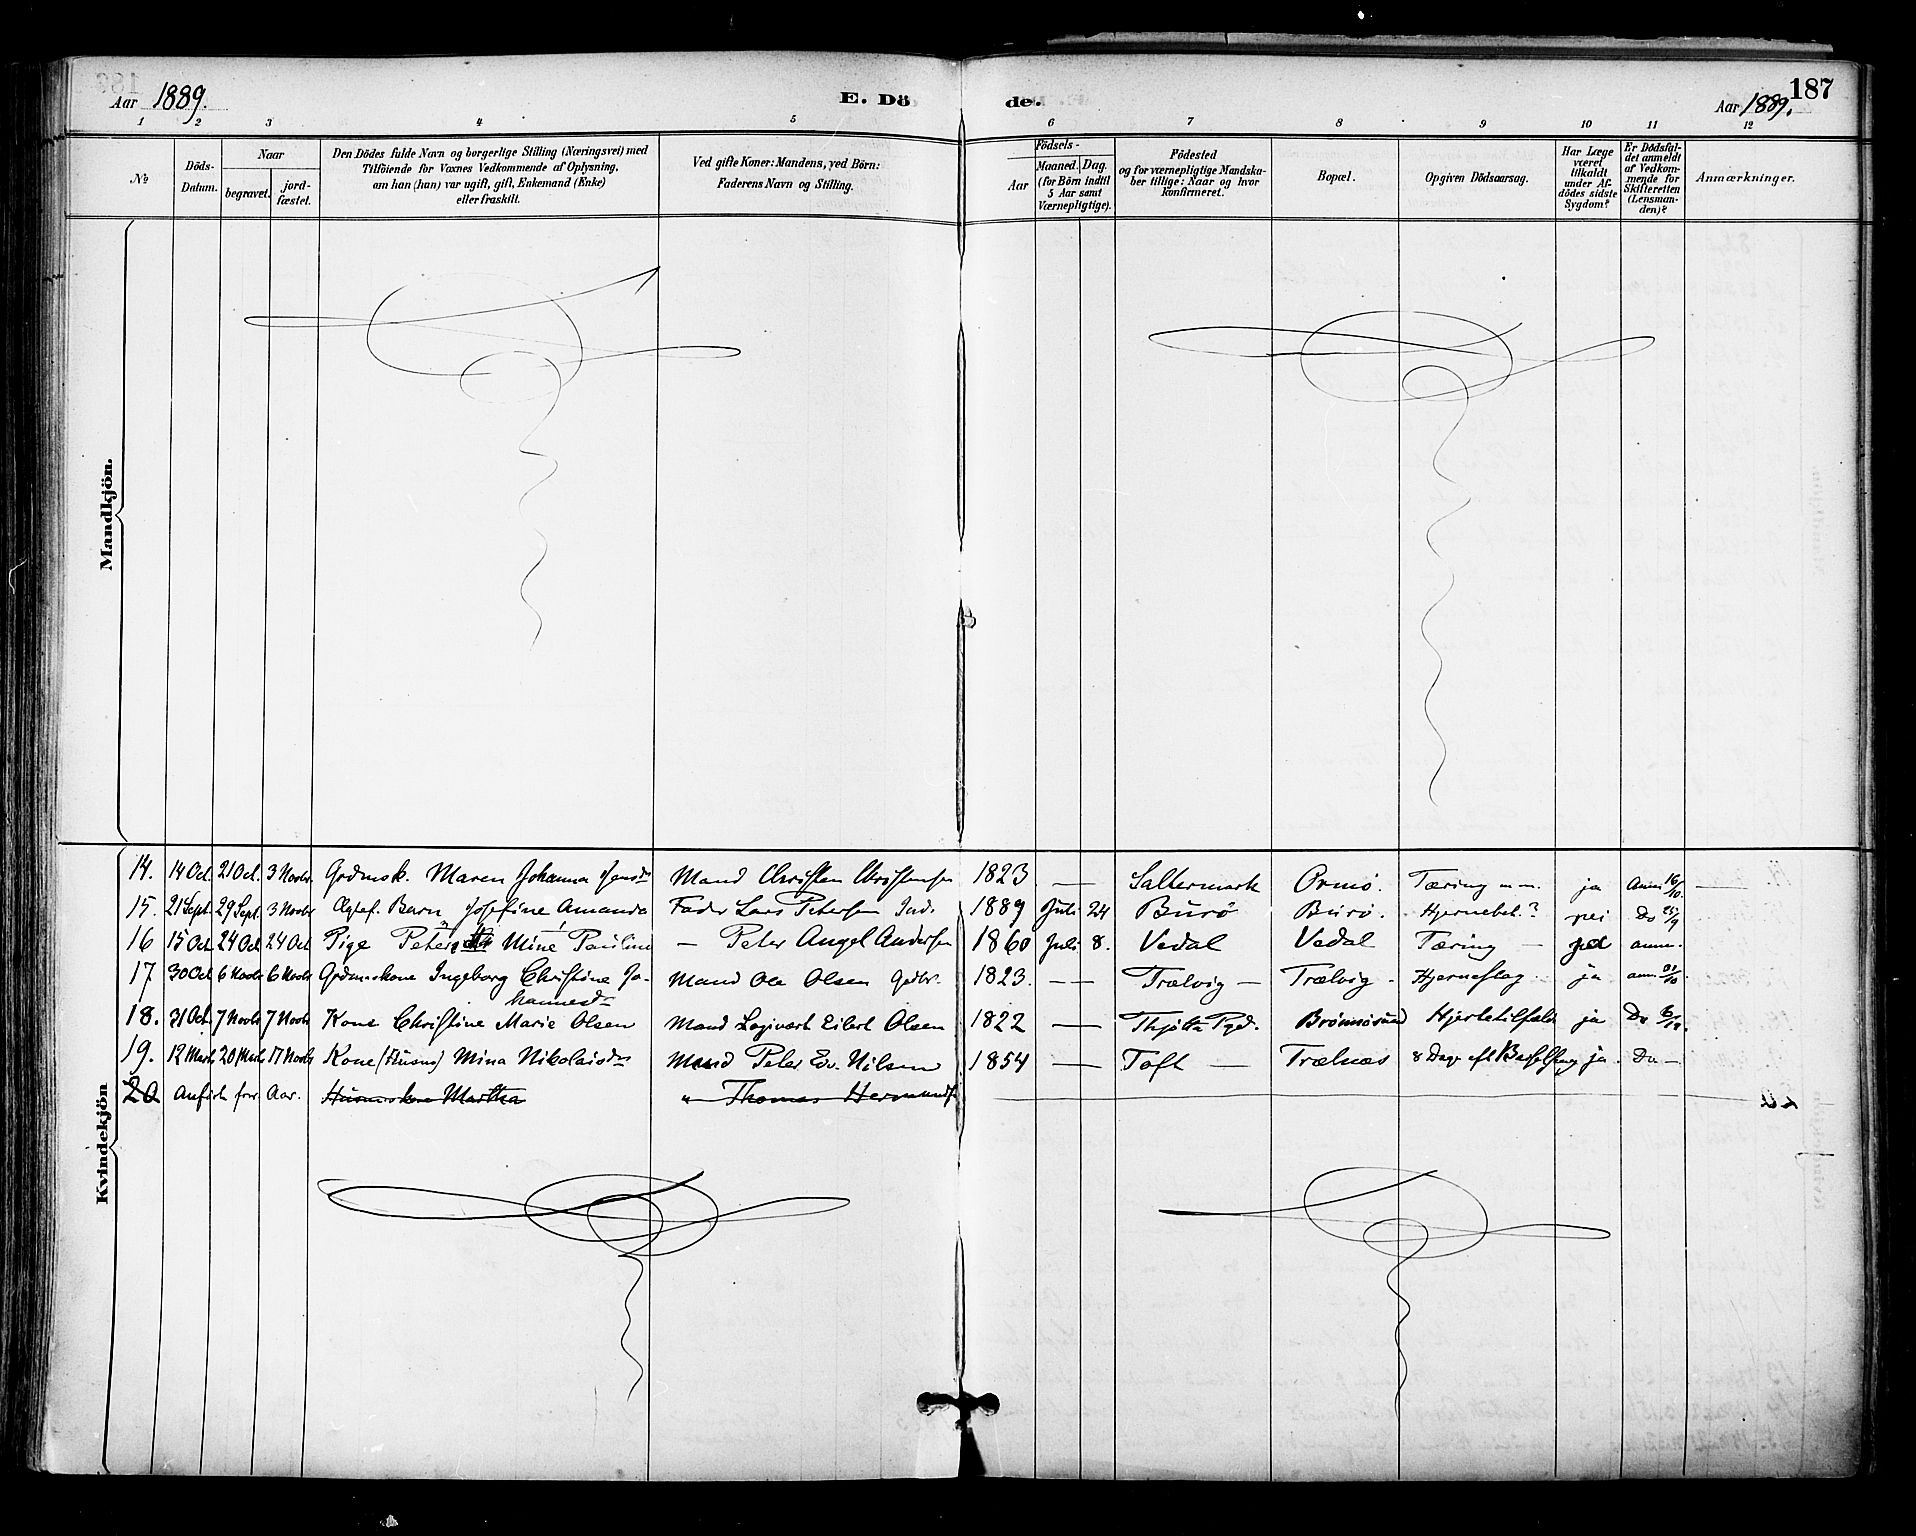 187
Aar 1889. E. Dö de. Aar 1889.
1 2 3 4 5 6 7 8 9 10 11 12
No
Döds-Datum.
Naar
begravet. jord-fæstet.
Den Dödes fulde Navn og borgerlige Stilling (Næringsvei) med
Tilföiende for Voxnes Vedkommende af Oplysning,
om han (hun) var ugift, gift, Enkemand (Enke)
eller fraskilt.
Ved gifte Koner: Mandens, ved Börn:
Faderens Navn og Stilling.
Födsels-
Aar
Maaned. Dag.
(for Börn indtil
5 Aar samt
Værnepligtige).
Födested
og for værnepligtige Mandska-
ber tillige: Naar og hvor
konfirmeret.
Bopæl.
Opgiven Dödsaarsag.
Har Læge
været
tilkaldt
under Af-
dödes sidste
Sygdom?
Er Dödsfal-
det anmeldt
af Vedkom-
mende for
Skifteretten
(Lensman-
den)?
Anmærkninger.
Mandkjön.
Kvindekjön
14. 14 Oct. 21 Oct. 3 Novbr. Grdmsk. Maren Johanna Jensdr Mand Christen Christensen 1823 — Saltermark Ormö. Tæring ja Anm 16/10. —
15. 21 Sept. 29 Sept. 3 Novbr Ægtef. Barn Josefine Amanda Fader Lars Petersen Ind. 1889 Juli 24 Burö Burö. Hjernebet.? nei Do
16 15 Oct 24 Oct 24 Oct Pige Mine Pauline — Peter Angel Andersen 1860 Juli 8. Vedal Vedal Tæring — anm.
17 30 Oct 6 Novbr 6 Novbr Grdmskone Ingeborg Christine Jo-
hannesdr Mand Ole Olsen Gdbr. 1823. — Trælvig — Trælvig - Hjerneslag ja anm
18. 31 Oct 7 Novbr 7 Novbr Kone Christine Marie Olsen Mand Eilert Olsen 1822 — Thjötta Pgd. Brönnösund Hjertetilfæld ja Do
19. 12 Marts 20 Marts 17 Novbr Kone (Husm) Mina Nikolaisdr Mand Peter Edv. Nilsen 1854 — Toft — Trælnæs 8 Dage eft Barselseng ja Do —
20 Anført forr. Aar. Husmskone Martha " Thomas Hermands.